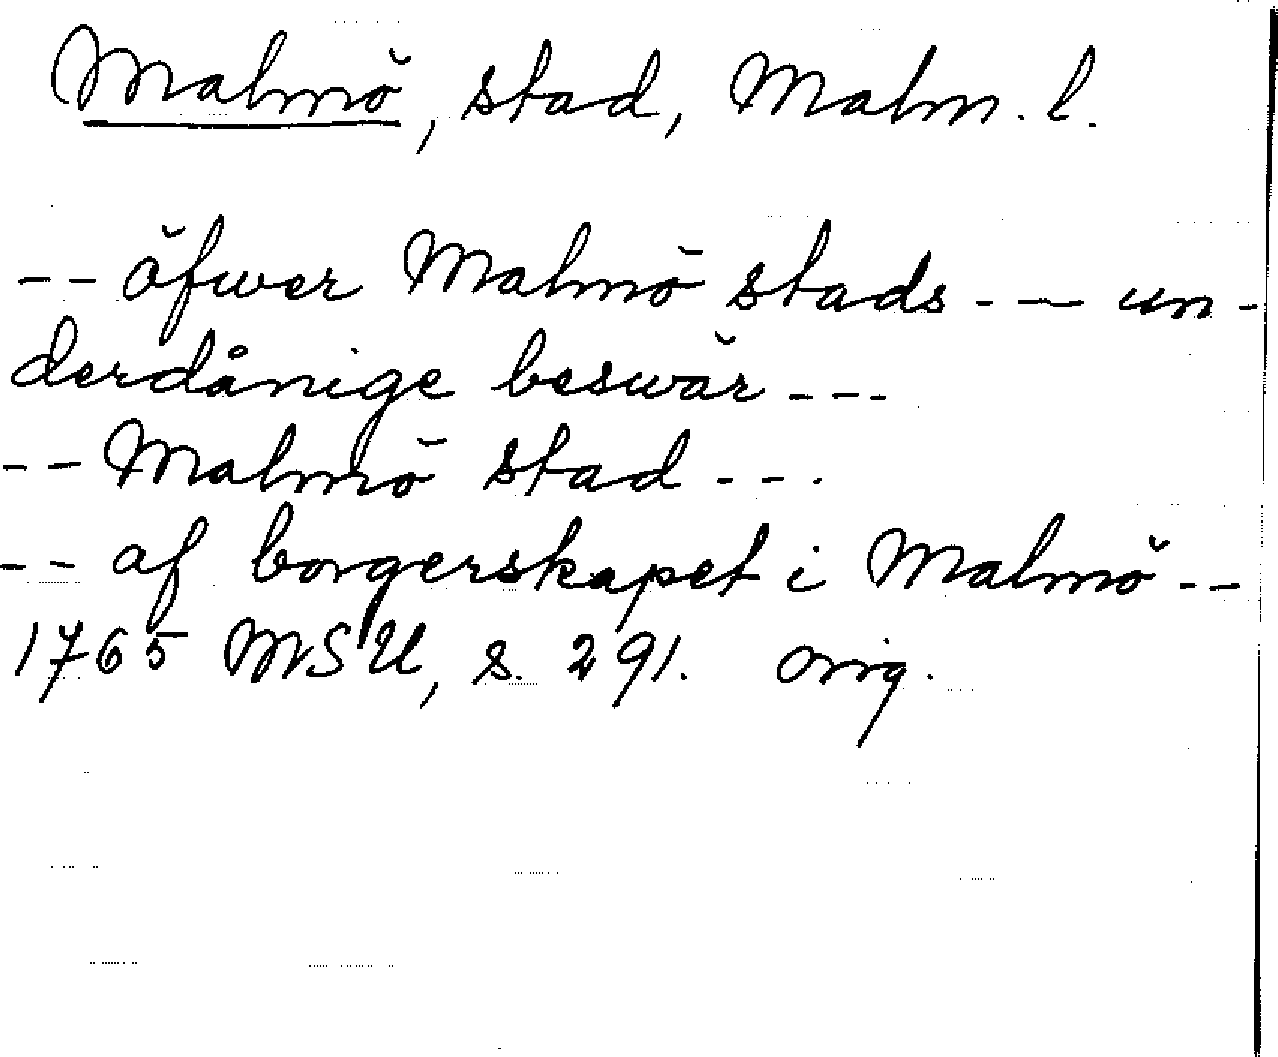 Malmö, stad, Malm. l.
-- öfwer Malmö stads --- un-
derdånige beswär ---
-- Malmö stad ---
-- af borgerskapet i Malmö --
1765 MSU, s. 291. orig.